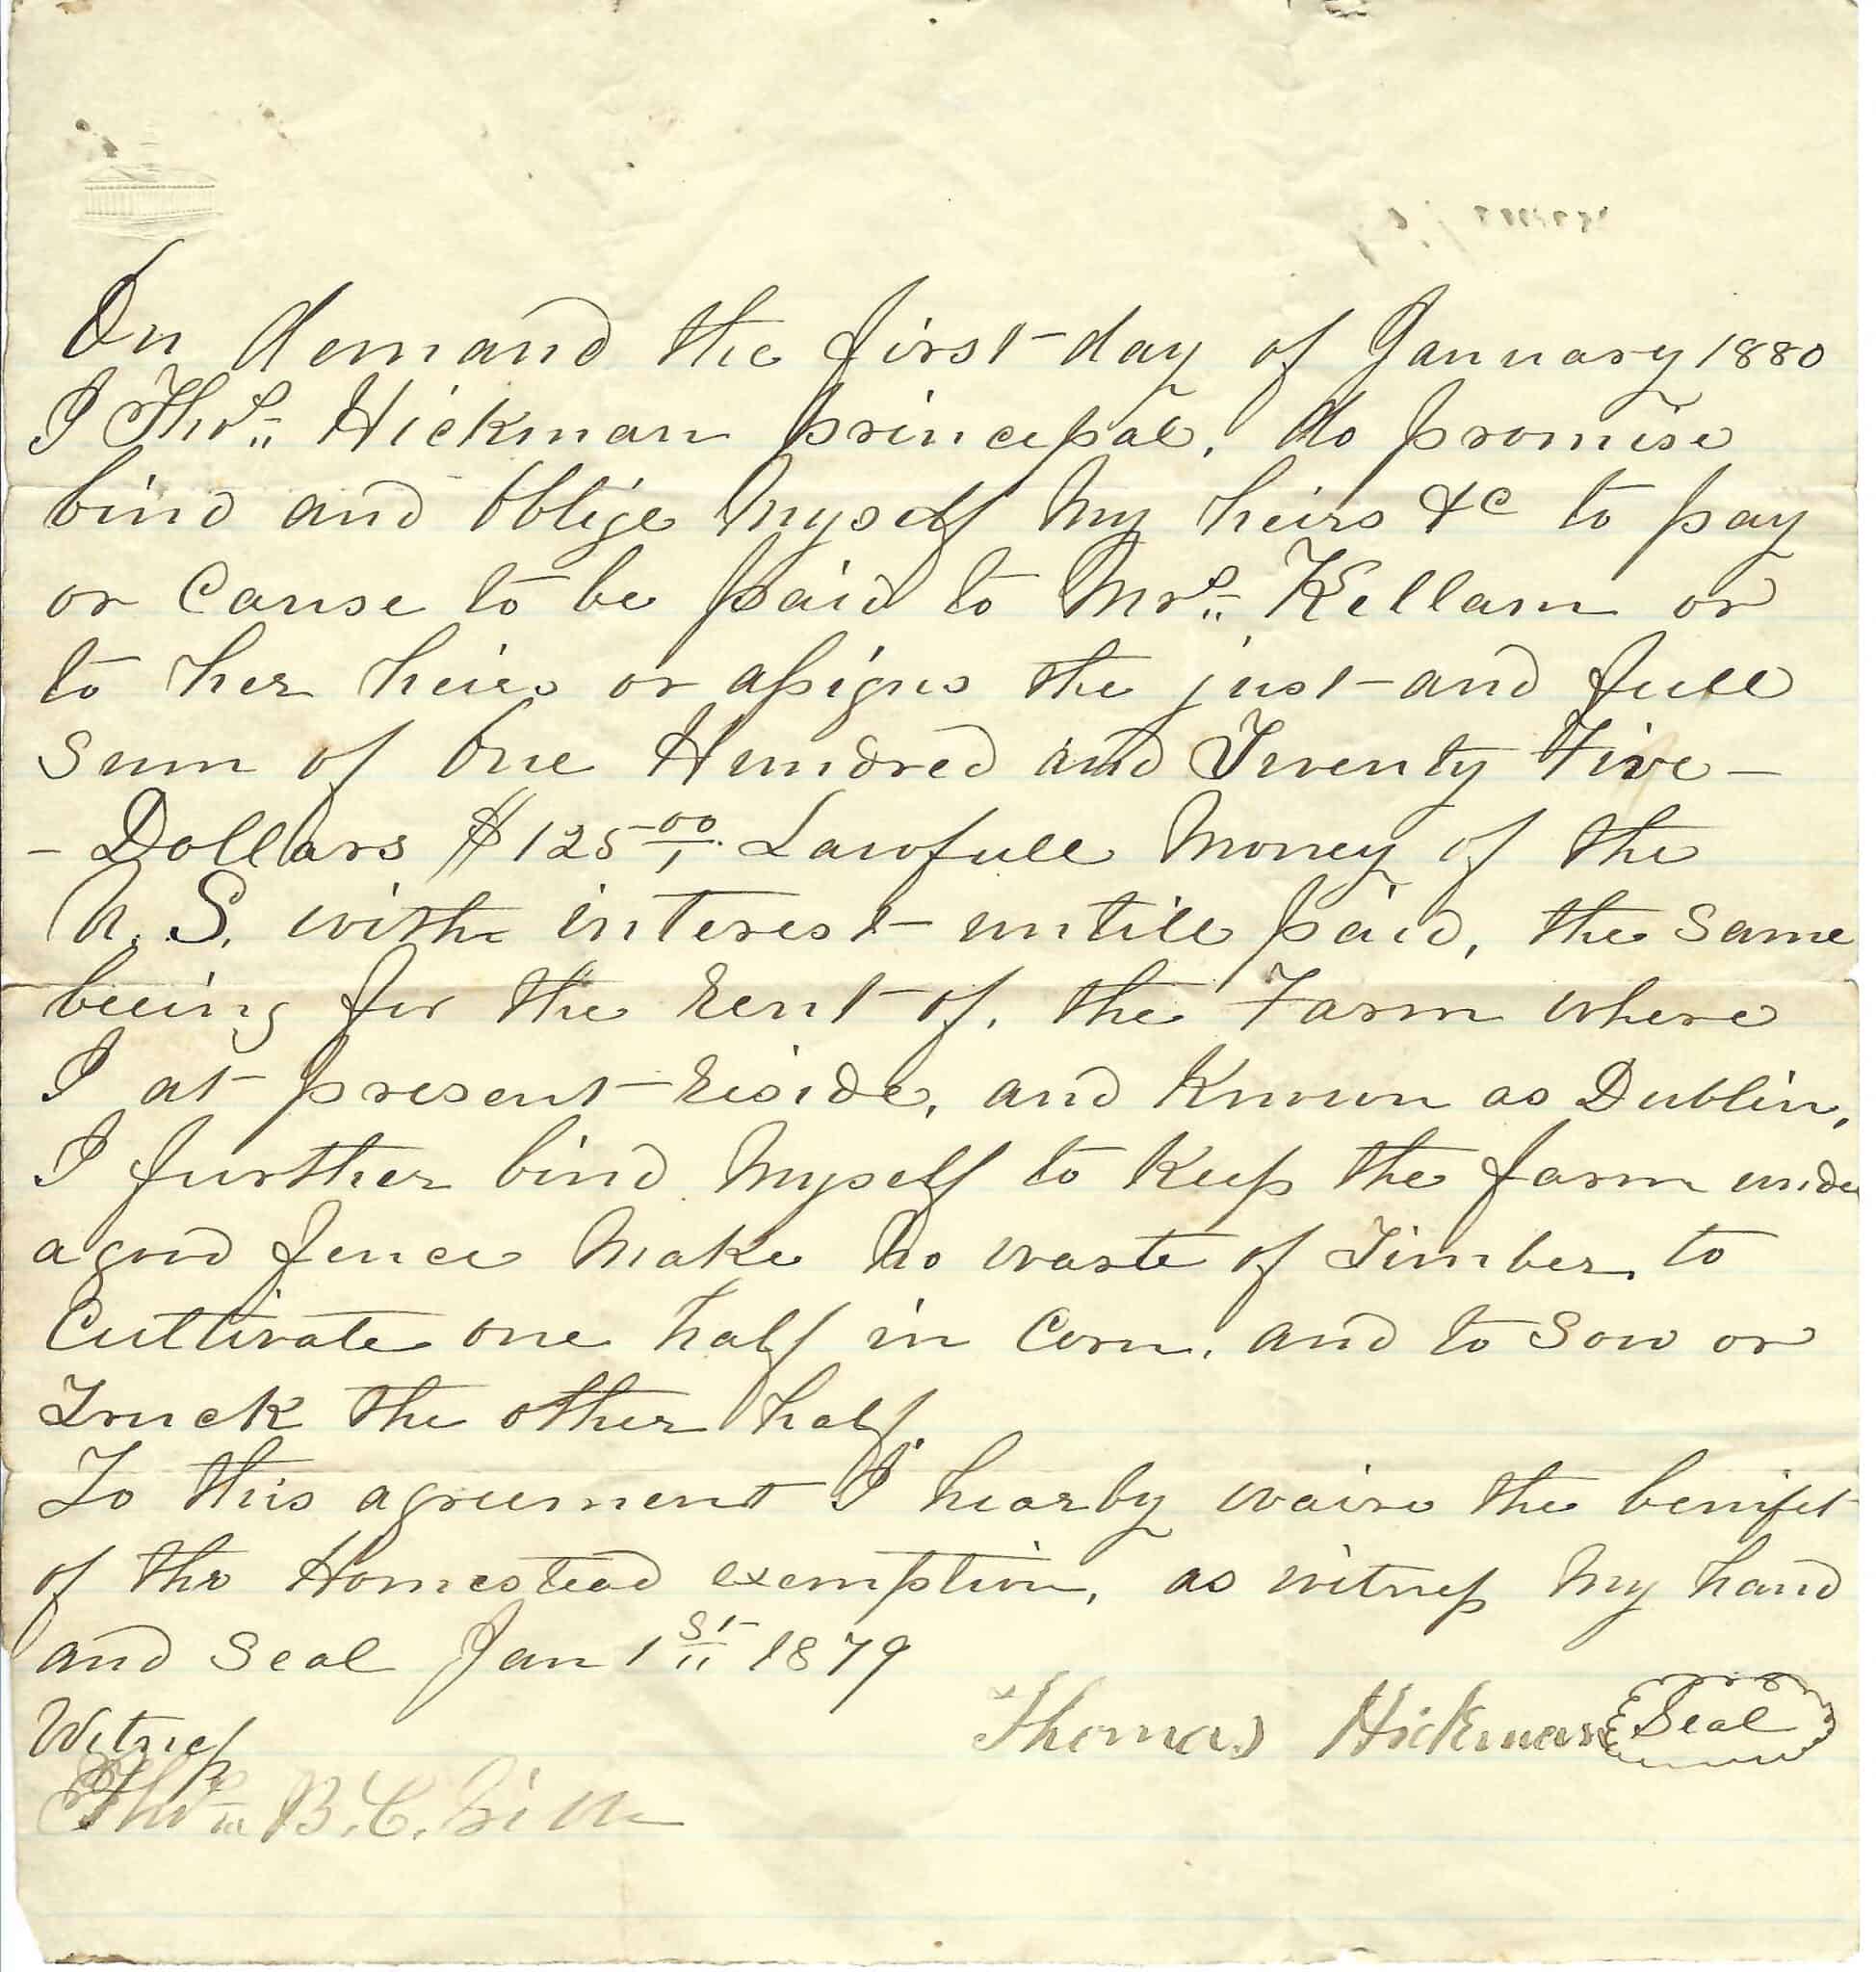 On demand the first day of January 1880
I Thos. Hickman principal, do promise
bind and oblige myself my heirs &c to pay
or cause to be paid to Mrs. Kellam or
to her heirs or assigns the just and full
sum of One Hundred and Twenty Five –
– Dollars $125 00/1. Lawfull Money of the
U. S. with interest untill paid, the same
beeing for the rent of, the Farm where
I at present reside, and Known as Dublin,
I further bind myself to Keep the farm unde
a good fence make no waste of Timber, to
Cultivate one half in Corn, and to Sow or
Truck the other half.
To this agreement I hearby waive the benifit
of the Homestead exemption, as witness my hand
and Seal Jan 1st 1879
Thomas Hickman Seal
Witness
Thos. B. C.